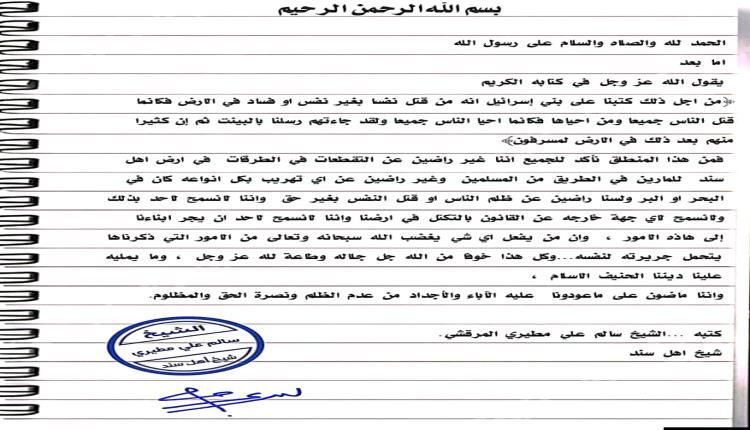 بسم الله الرحمن الرحيم
الحمد لله والصلاه والسلام على رسول الله
اما بعد
يقول الله عز وجل في كتابه الكريم
﴿من اجل ذلك كتبنا على بني إسرائيل انه من قتل نفسا بغير نفس او فساد في الارض فكانما
قتل الناس جميعا ومن احياها فكانما احيا الناس جميعا ولقد جاءتهم رسلنا بالبينت ثم إن كثيرا
منهم بعد ذلك في الارض لمسرفون﴾
فمن هذا المنطلق نأكد للجميع اننا غير راضين عن التقطعات في الطرقات في ارض اهل
سند للمارين في الطريق من المسلمين وغير راضين عن اي تهريب بكل انواعه كان في
البحر او البر ولسنا راضين عن ظلم الناس او قتل النفس بغير حق واننا لانسمح لاحد بذلك
ولانسمح لاي جهة خارجه عن القانون بالتكتل في ارضنا واننا لانسمح لاحد ان يجر ابناءنا
إلى هاذه الامور ، وان من يفعل اي شي يغضب الله سبحانه وتعالى من الامور التي ذكرناها
يتحمل جريرته لنفسه...وكل هذا خوفا من الله جل جلاله وطاعة لله عز وجل ، وما يمليه
علينا ديننا الحنيف الاسلام ،
واننا ماضون على ماعودونا عليه الآباء والأجداد من عدم الظلم ونصرة الحق والمظلوم.
كتبه ...الشيخ سالم علي مطيري المرقشي.
شيخ اهل سند
الشيخ
سالم علي مطيري
شيخ أهل سند